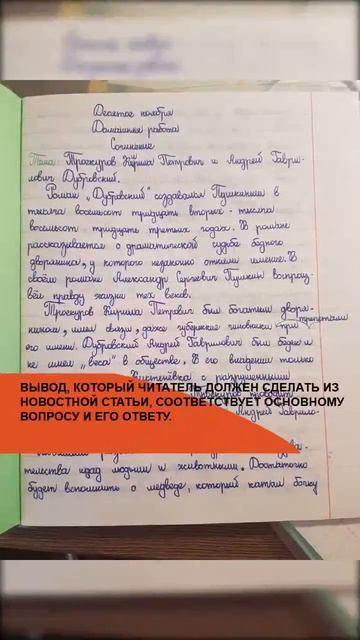 Десятое ноября
Домашняя работа
Сочинение
Тема: Троекуров Кирила Петрович и Андрей Гаври-
лович Дубровский.
Роман „Дубровский" создавался Пушкиным в
тысяча восемьсот тридцать втором - тысяча
восемьсот тридцать третьих годах. В романе
рассказывается о драматической судьбе бедного
дворянина, у которого незаконно отняли имение. В
своём романе Александр Сергеевич Пушкин воспроиз-
вёл правду жизни тех веков.
Троекуров Кирила Петрович был богатым дворя-
нином, имел связи, даже губернские чиновники трепетали при
его имени. Дубровский Андрей Гаврилович был беден и
не имел „веса" в обществе. В его владении только
Кистенёвка с
ВЫВОД, КОТОРЫЙ ЧИТАТЕЛЬ ДОЛЖЕН СДЕЛАТЬ ИЗ
НОВОСТНОЙ СТАТЬИ, СООТВЕТСТВУЕТ ОСНОВНОМУ
ВОПРОСУ И ЕГО ОТВЕТУ.
Андрей Гаврило-
тельства над людьми и животными. Достаточно
будет вспомнить о медведе, который катал бочку